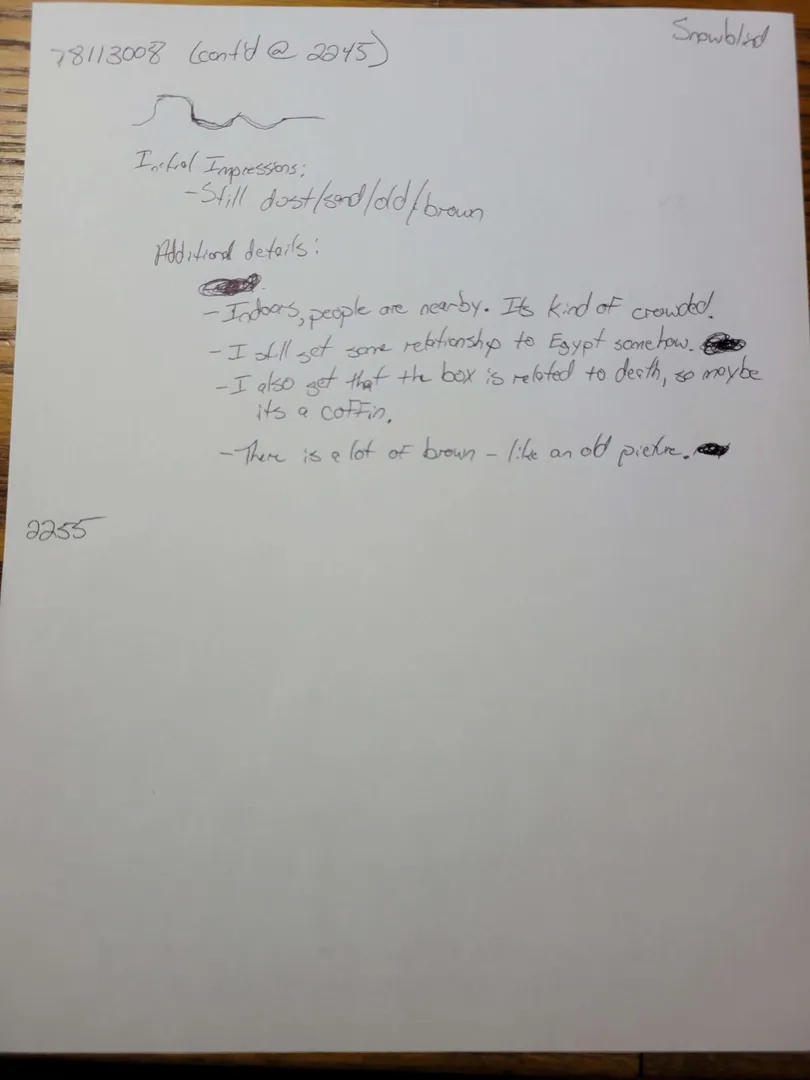 Snowblind
78113008 (cont'd @ 2245)
Initial Impressions:
- Still dust/sand/old/brown
Additional details:
- Indoors, people are nearby. Its kind of crowded.
- I still get some relationship to Egypt somehow.
- I also get that the box is related to death, so maybe
its a coffin.
- There is a lot of brown - like an old picture.
2255